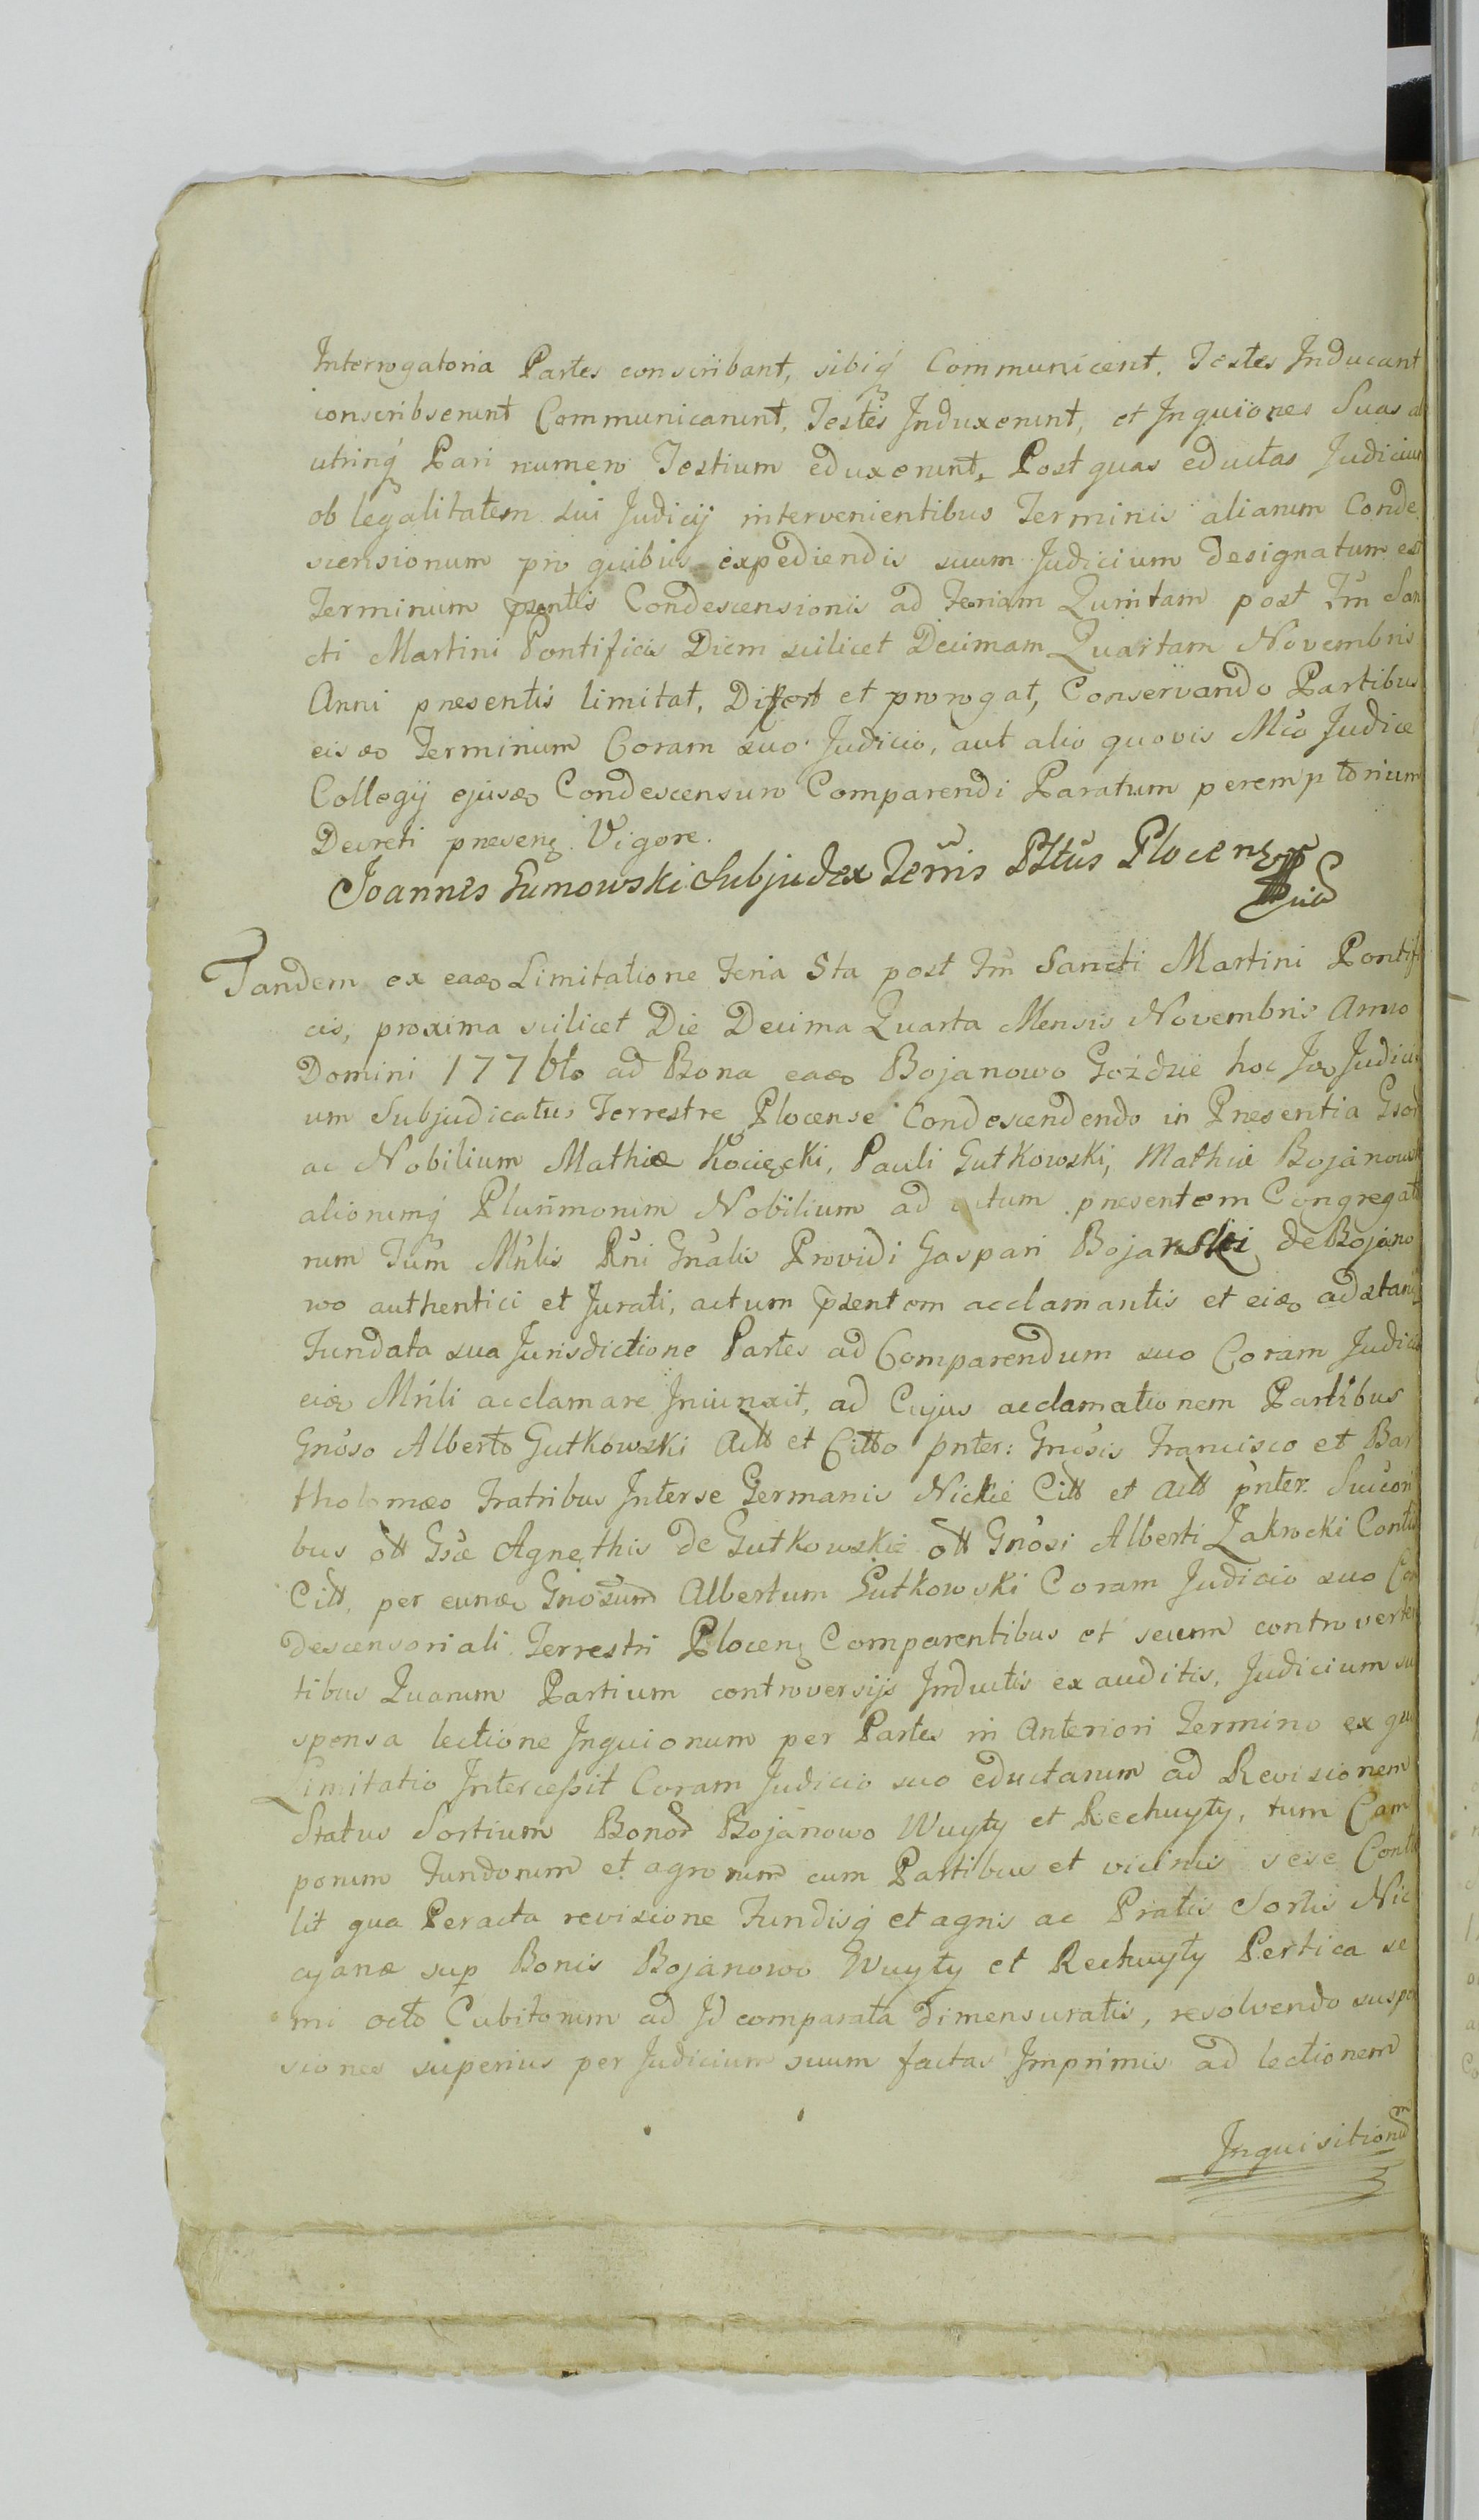 Interrogatoria Partes conscribant, sibiq́ Communicent, Testes Inducant
conscribserunt Communicarunt, Testes Induxerunt, et Inquiones Suas ab
utrinq́ Pari numero Testium eduxerunt, Post quas eductas Judicium
ob legalitatem sui Judicij intervenientibus Terminis aliarum Conde
scensionum pro quibus expediendis suum Judicium designatum est
Terminum pntis Condescensionis ad Feriam Quintam post Fm̃ San
cti Martini Pontificis Diem scilicet Decimam Quartam Novembris
Anni presentis limitat, Differt et prorogat, Conservando Partibus
eisd Terminum Coram suo Judicio, aut alio quovis Mco Judice
Collegij ejusd Condescensuro Comparendi Paratum peremptorium
Decreti presenz Vigore.
Joannes Sumowski Subjudex Terris Pltus Plocenz
Tandem ex ead Limitatione Feria 5ta post Fm̃ Sancti Martini Pontifi
cis, proxima scilicet Die Decima Quarta Mensis Novembris Anno
Domini 1776to ad Bona ead Bojanowo Goździe hoc Id Judici
um Subjudicatus Terrestre Plocense Condescendendo in Presentia Gsor
ac Nobilium Mathiæ Kocięcki, Pauli Gutkowski, Mathiæ Bojanowsk
aliorumq́ Plurimorum Nobilium ad actum presentem Congregato
rum Tum Mnlis Rni Gnalis Providi Gaspari Bojanski de Bojano
wo authentici et Jurati, actum pzentem acclamantis et eid adstanz
Fundata sua Jurisdictione Partes ad Comparendum suo Coram Judicio
eid Mnli acclamare Iniunxit, ad Cujus acclamationem Partibus
Gnoso Alberto Gutkowski Actt et Citto pnter: Gnosis Francisco et Bar
tholomæo Fratribus Interse Germanis Nickie Citt et Actt pnter: Succori
bus ott Gsæ Agnethis de Gutkowskie ott Gnosi Alberti Zakrocki Contu
Citt, per eund Gnosum Albertum Gutkowski Coram Judicio suo Con
descensoriali Terrestri Plocenz Comparentibus et secum controverten
tibus Quarum Partium controversijs Inductis exauditis, Judicium su
spensa lectione Inquionum per Partes in Anteriori Termino ex quo
Limitatio Intercessit Coram Judicio suo eductarum ad Revisionem
Status Sortium Bonor Bojanowo Wuyty et Rechuyty, tum Cam
porum Fundorum et agrorum cum Partibus et vicinis sese Contu
lit qua Peracta revisione Fundisq́ et agris ac Pratis Sortis Nic
cyanæ sup Bonis Bojanowo Wuyty et Rechuyty Pertica se
mi octo Cubitorum ad Id comparata dimensuratis, resolvendo suspen
siones superius per Judicium suum factas Imprimis ad lectionem
Inquisitionum